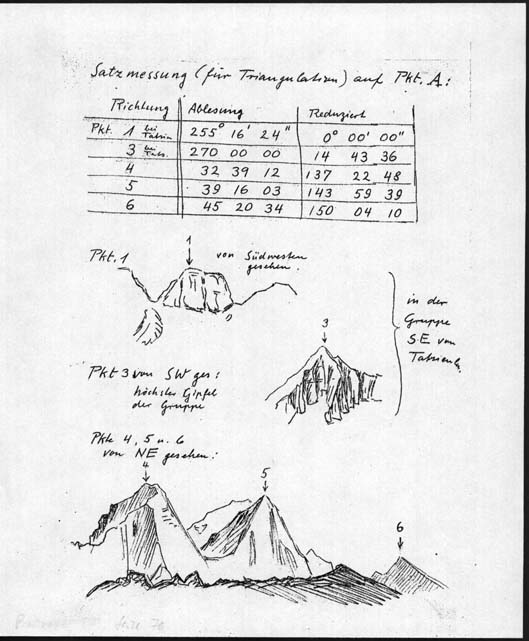 Satzmessung (für Triangulation) auf Pkt. A:
Richtung Ablesung Reduziert
Pkt. 1 bei 255° 16' 24" 0° 00' 00"
3 bei 270 00 00 14 43 36
4 32 39 12 137 22 48
5 39 16 03 143 59 39
6 45 20 34 150 04 10
1
Pkt. 1 von Südwesten
gesehen.
in der
Gruppe
SE von
3
Pkt 3 von SW ges:
höchster Gipfel
der Gruppe
Pkte 4, 5 u. 6
von NE gesehen:
4
5
6